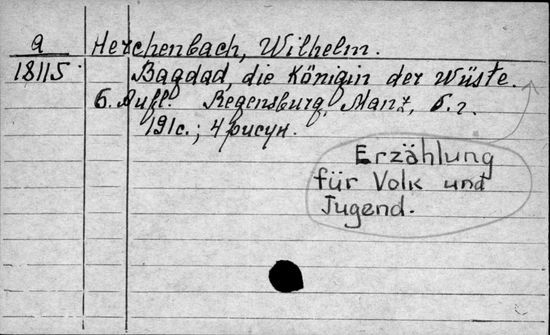 a
18115
Herchenbach, Wilhelm.
Bagdad, die Königin der Wüste.
6. Aufl. Regensburg, Manz, б. г.
191с.; 4 рисун.
Erzählung
für Volk und
Jugend.